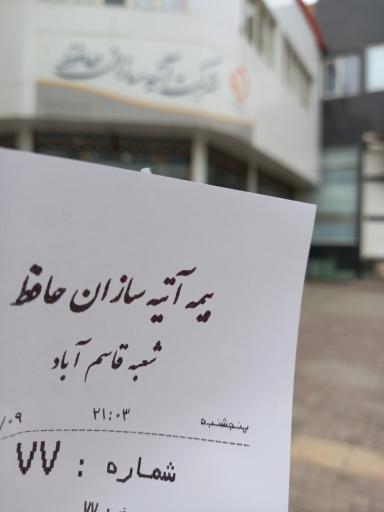 شرکت آتیه سازان حافظ
بیمه آتیه سازان حافظ
شعبه قاسم آباد
پنجشنبه ۲۱:۰۳ /۰۹
شماره : ۷۷